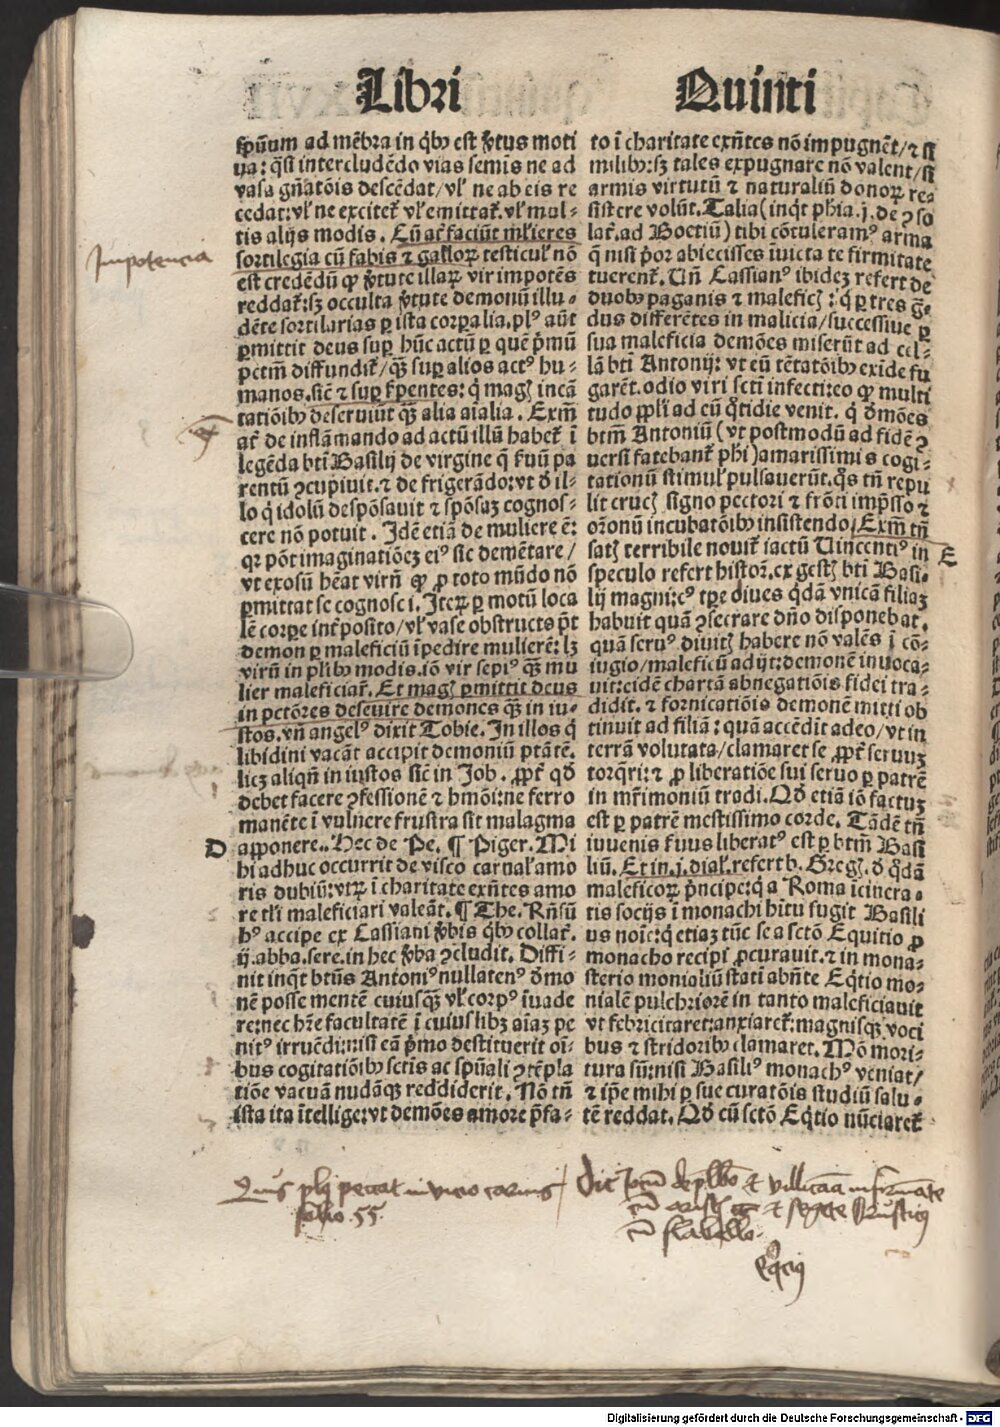 Libri Quinti
sp̄uum ad mēbra in qͥbꝰ est v̄tus moti
ua: q̄si intercludēdo vias semīs ne ad
vasa gn̄atōis descēdat/vl̓ ne ab eis re
cedat: vl̓ ne excitet᷑ vl̓ emittat᷑. vl̓ mul⸗
tis alijs modis. Cū at᷑ faciūt ml̓ieres
sortilegia cū fabis ⁊ galloꝝ testicul̓ nō
est credēdū ꝙ v̄tute illaꝝ vir impotēs
reddat᷑: sꝫ occulta v̄tute demonū illu⸗
dēte sortilarias ꝑ ista corꝑalia. plꝰ aūt
ꝑmittit deus suꝑ hūc actū ꝑ quē p̄mū
pctm̄ diffundit᷑/qꝫ̄ suꝑ alios actꝰ hu⸗
manos. sic̄ ⁊ suꝑ s̓pentes: qͥ magꝭ incā
tatiōibꝰ deseruiūt qꝫ̄ alia aīalia. Exm̄
at᷑ de inflāmando ad actū illū habet᷑ ī
legēda btī Basilij de virgine q̄ s̓uū pa
rentū ꝯcupiuit. ⁊ de frigerādo: vt ð il⸗
lo qͥ idolū despōsauit ⁊ spōsaꝫ cognos⸗
cere nō potuit. Idē etiā de muliere ē:
qꝛ pōt imaginatiōeꝫ eiꝰ sic demētare/
vt exosū hēat virū ꝙ ꝓ toto mūdo nō
ꝑmittat se cognosci. Iteꝝ ꝑ motū loca
lē corꝑe int̓posito/vl̓ vase obstructo pōt
demon ꝑ maleficiū īpedire mulierē: lꝫ
virū in pl̓ibꝰ modis. iō vir sepiꝰ qꝫ̄ mu
lier maleficiat᷑. Et magꝭ ꝑmittit deus
in pctōres deseuire demones qꝫ̄ in iu⸗
stos. vn̄ angelꝰ dixit Tobie. In illos qͥ
libidini vacāt accipit demoniū ptātē.
licꝫ aliqn̄ in iustos sic̄ in Job. ꝓpt̓ qð
debet facere ꝯfessionē ⁊ hmōi: ne ferro
manēte ī vulnere frustra sit malagma
D apponere. Hec de Pe. ¶ Piger. Mi
hi adhuc occurrit de visco carnal̓ amo
ris dubiū: vtꝝ ī charitate exn̄tes amo
re tl̓i maleficiari valeāt. ¶ The. Rn̄sū
hꝰ accipe ex Cassiani v̄bis qͥbꝰ collat᷑.
ij. abba. sere. in hec v̄ba ꝯcludit. Diffi⸗
nit inqͭ btūs Antoniꝰ nullatenꝰ ðmo
nē posse mentē cuiusqꝫ̄ vl̓ corpꝰ īuade
re: nec hr̄e facultatē ī cuius libꝫ aīaꝫ pe
nitꝰ irruēdi: nisi eā p̄mo destituerit oī⸗
bus cogitatiōibꝰ sctīs ac spūali ꝯtēpla
tiōe vacuā nudāqꝫ reddiderit. Nō tn̄
ista ita ītellige: vt demōes amore p̄fa⸗
to ī charitate exn̄tes nō impugnēt/⁊ sī
milibꝰ: sꝫ tales expugnare nō valent/sī
armis virtutū ⁊ naturaliū donoꝝ re⸗
sistere volūt. Talia (inqͭ phīa. j. de ꝯso
lat᷑. ad Boetiū) tibi cōtuleramꝰ arma
q̄ nisi p̓or abiecisses īuicta te firmitate
tuerent᷑. Un̄ Cassianꝰ ibideꝫ refert de
duobꝰ paganis ⁊ maleficꝭ: qͥ ꝑ tres gͣ⸗
dus differētes in malicia/successiue ꝑ
sua maleficia demōes miserūt ad cel⸗
lā btī Antonij: vt eū tētatōibꝰ exīde fu
garēt. odio viri sctī infecti: eo ꝙ multi
tudo ppl̓i ad eū qͦtidie venit. qͥ ðmōes
btm̄ Antoniū (vt postmodū ad fidē ꝯ
uersi fatebant᷑ phī) amarissimis cogi⸗
tationū stimul̓ pulsauerūt. qͦs tn̄ repu
lit crucꝭ signo pectori ⁊ frōti imp̄sso ⁊
or̄onū incubatōibꝰ insistendo. Exm̄ tn̄
satꝭ terribile nouit᷑ factū Uincentiꝰ in E
speculo refert histor᷑. ex gestꝭ btī Basi⸗
lij magni: cꝰ tp̄e diues qͥdā vnicā filiaꝫ
habuit quā ꝯsecrare dn̄o disponebat.
quā seruꝰ diuitꝭ habere nō valēs ī cō⸗
iugio/maleficū adijt: demonē inuoca⸗
uit: eidē chartā abnegatiōis fidei tra⸗
didit. ⁊ fornicatiōis demonē mitti ob
tinuit ad filiā: quā accēdit adeo/vt in
terrā volutata/clamaret se ꝓpt̓ seruuꝫ
torqͣri: ⁊ ꝓ liberatiōe sui seruo ꝑ patrē
in mr̄imoniū tradi. Qð etiā iō factuꝫ
est ꝑ patrē mestissimo corde. Tādē tn̄
iuuenis s̓uus liberatꝰ est ꝑ btm̄ Basi
liū. Et in. j. dial̓. refert b. Gregꝭ. ð qͦdā
maleficoꝝ p̄ncipe: qͥ a Roma īcinera⸗
tis socijs ī monachi hītu fugit Basili
us noīe: qͥ etiaꝫ tūc se a sctō Equitio ꝓ
monacho recipi ꝓcurauit. ⁊ in mona⸗
sterio monialiū statī abn̄te Eqͥtio mo⸗
nialē pulchriorē in tanto maleficiauit
vt febricitaret: anxiaret᷑: magnisqꝫ voci
bus ⁊ stridoribꝰ clamaret. Mō mori⸗
tura sū: nisi Basiliꝰ monachꝰ veniat/
⁊ īpe mihi ꝑ sue curatōis studiū salu⸗
tē reddat. Qð cū sctō Eqͥtio nūciaret᷑
Impotencia
Quis plꝰ peccat in vicio carnis
folio. 55.